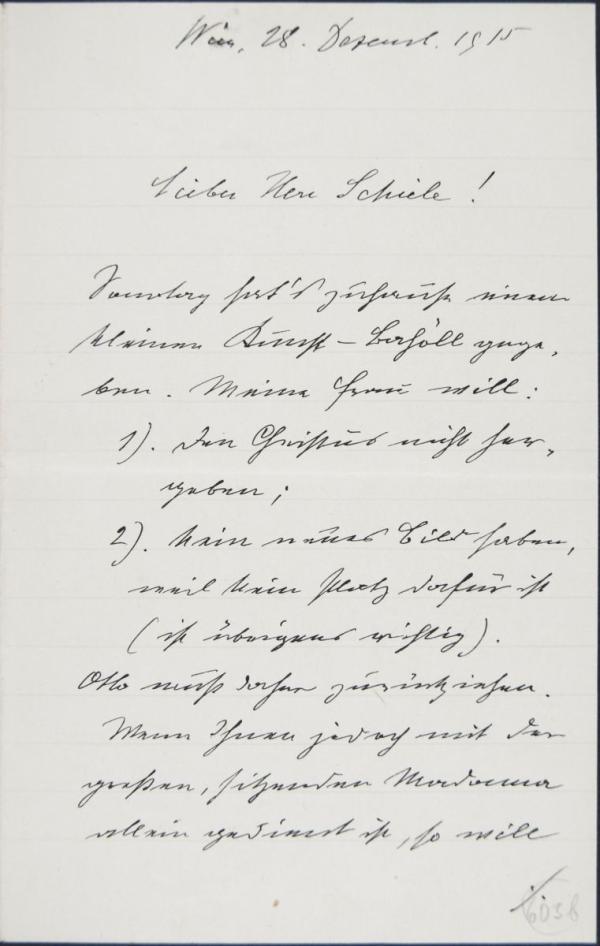 Wien, 28. Dezemb. 1915
Lieber Herr Schiele!
Sonntag hat's zuhause einen
kleinen Kunst- gege,
ben. Meine Frau will:
1). den Christus nicht her,
geben;
2). kein neues Bild haben,
weil kein Platz dafür ist
(ist übrigens richtig).
Otto muß daher zurückziehen.
Wenn Ihnen jedoch mit der
großen, sitzenden Madonna
allein gedient ist, so will
./.
6038